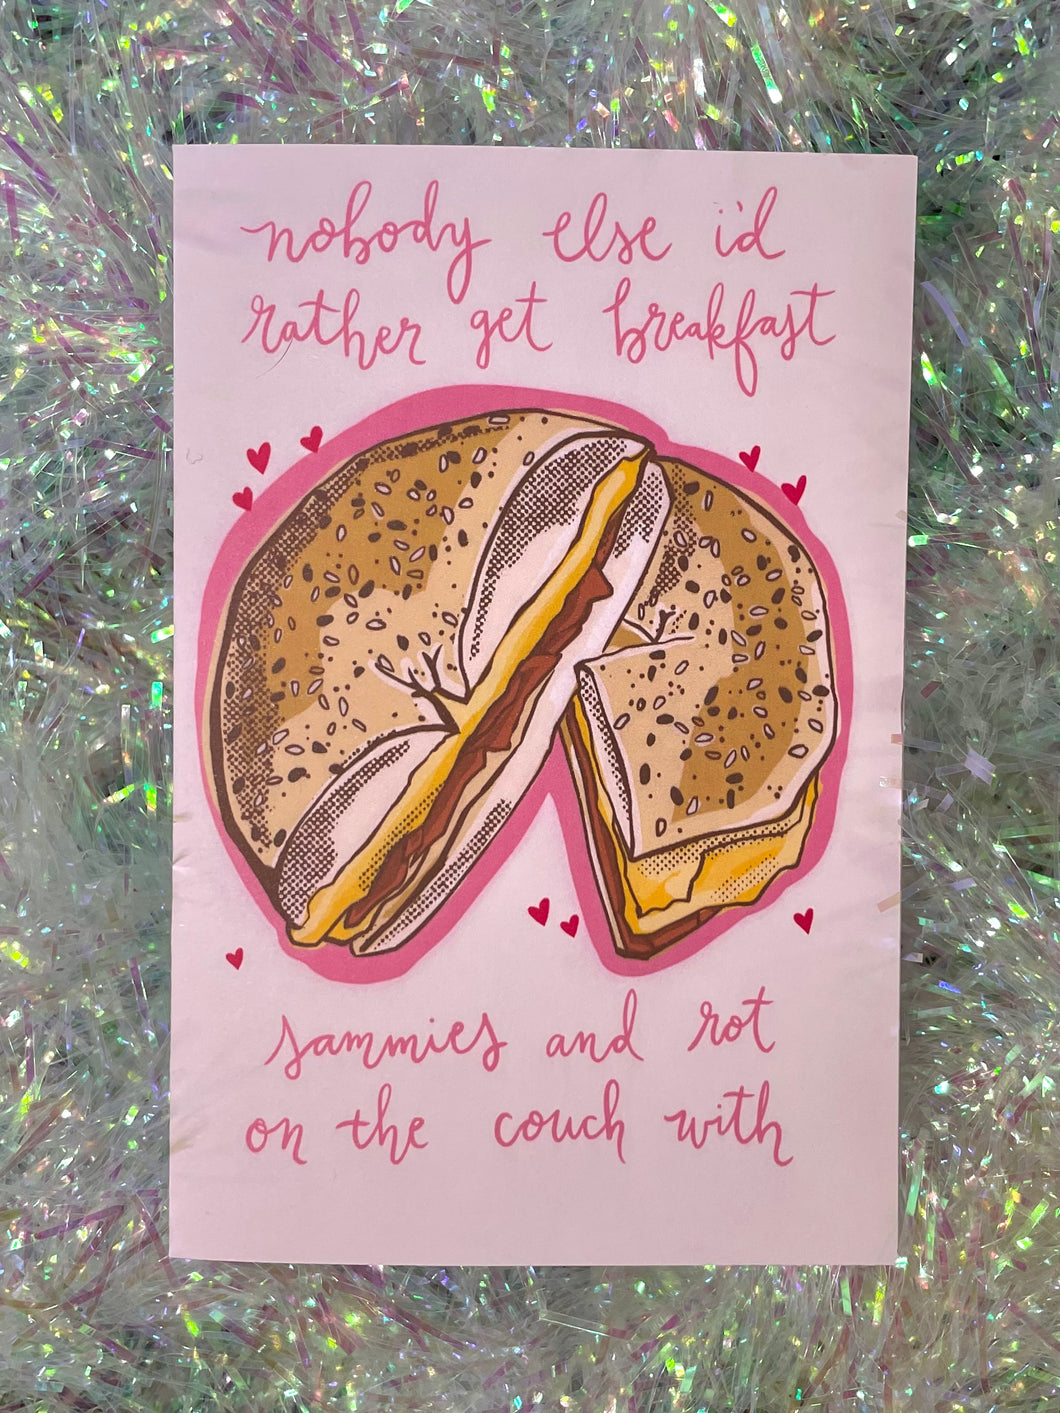 nobody else i'd
rather get breakfast
sammies and rot
on the couch with